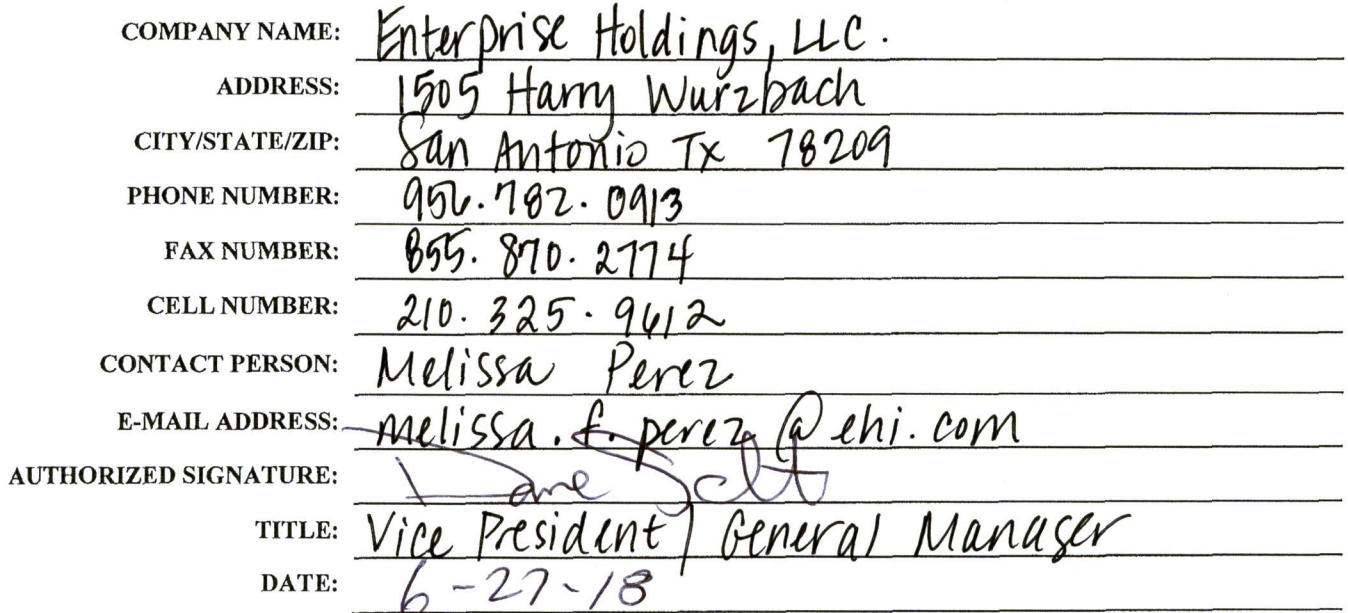 COMPANY NAME: Enterprise Holdings, LLC.
ADDRESS: 1505 Harry Wurzbach
CITY/STATE/ZIP: San Antonio Tx 78209
PHONE NUMBER: 956.782.0913
FAX NUMBER: 855.870.2774
CELL NUMBER: 210.325.9612
CONTACT PERSON: Melissa Perez
E-MAIL ADDRESS: melissa.f.perez@ehi.com
AUTHORIZED SIGNATURE:
TITLE: Vice President / General Manager
DATE: 6-27-18